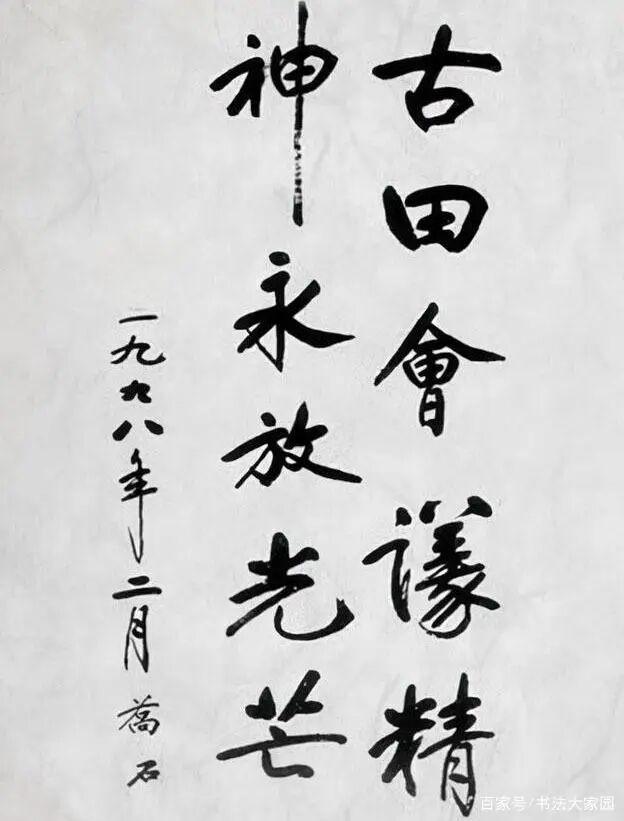 古田會議精
神永放光芒
一九九八年二月 喬石
百家号/书法大家园